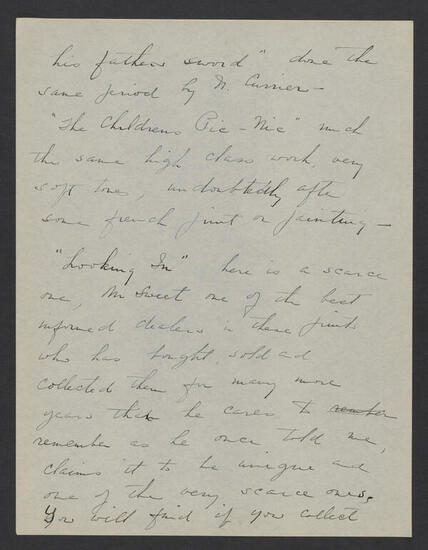 his fathers sword" done the
same period by N. Currier –
"The Childrens Pic – Nic" much
the same high class work, very
soft tones, undoubtedly after
some french print or painting –
"Looking In" here is a scarce
one, Mr Sweet one of the best
informed dealers in these prints
who has bought, sold and
collected them for many more
years than he cares to remember
remember as he once told me,
claims it to be unique and
one of the very scarce ones.
You will find if you collect